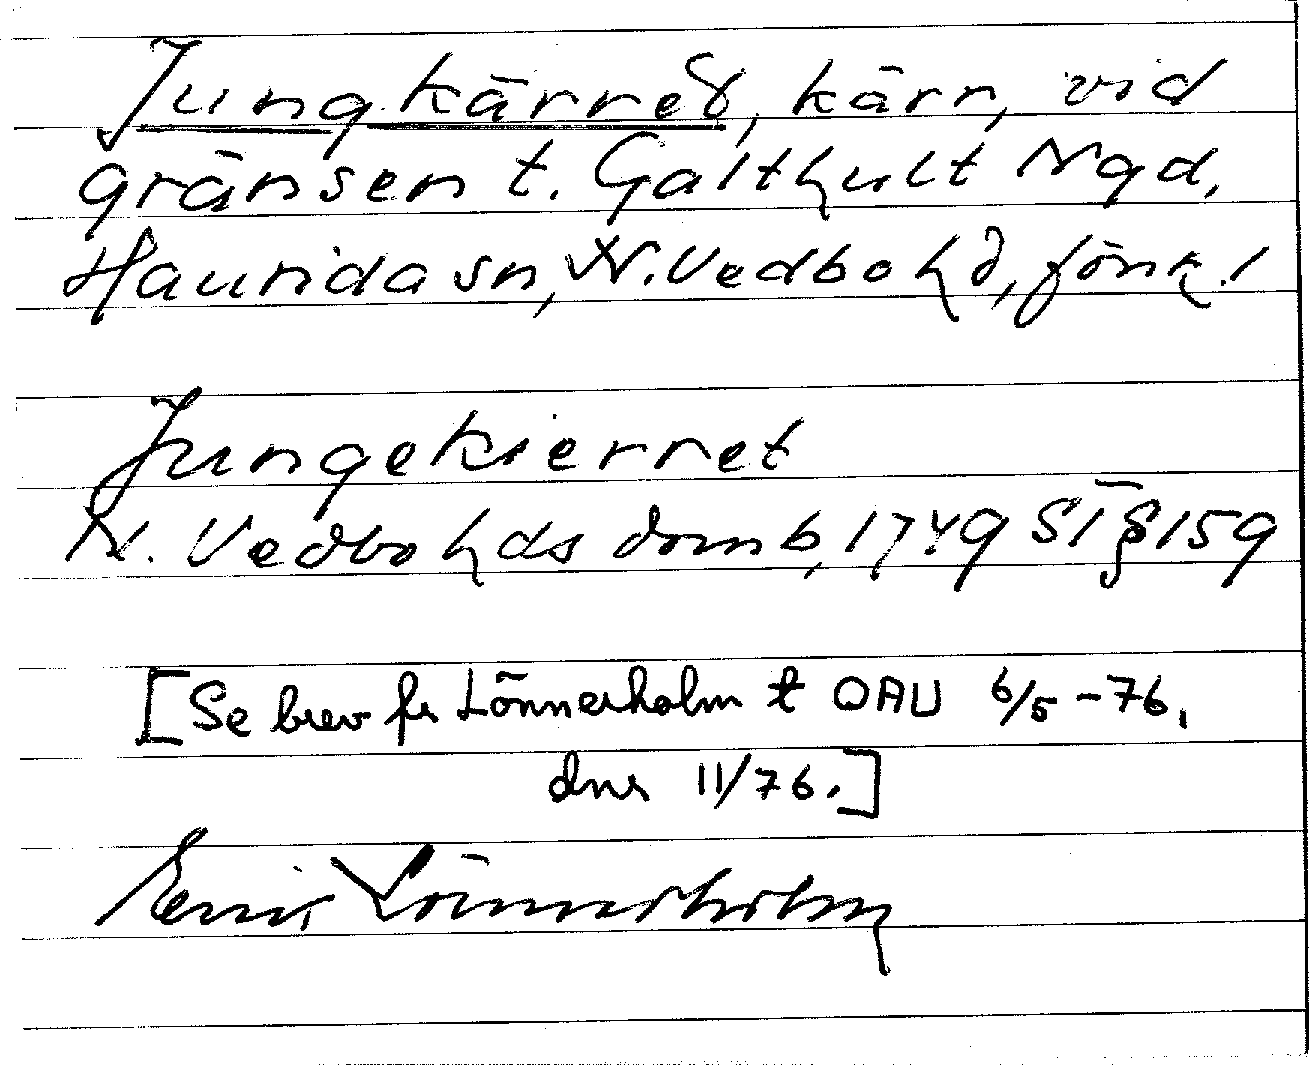 Jungkärret, kärr, vid
gränsen t. Galthult Ngd,
Haurida sn, N. Vedbo hd, Jönk. l
Jungekierret
N. Vedbo hds domb, 1749 ST § 159
[Se brev fr Lönnerholm t OAU 6/5 -76,
dnr 11/76.]
Erik Lönnerholm